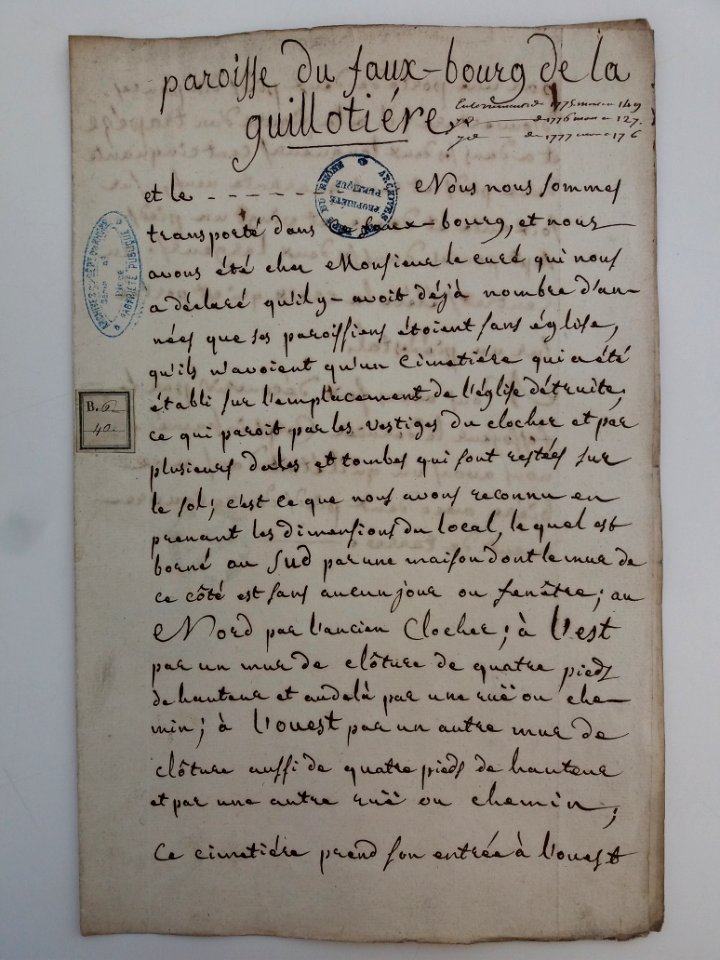 paroisse du faux-bourg de la
guillotiére
en 1775 149
en 1776 127.
en 1777 176
et le - - - - - - Nous nous sommes
transporté dans faux-bourg, et nous
avons été cher Monsieur le curé qui nous
a déclaré qu'il y avoit déjà nombre d'an-
nées que ses paroissiens étoient sans église,
qu'ils n'avoient qu'un cimetiére qui a été
établi sur l'emplacement de l'église détruite,
ce qui paroit par les vestiges du clocher et par
plusieurs dales et tombes qui sont restées sur
le sol; c'est ce que nous avons reconnu en
prenant les dimensions du local, le quel est
borné au Sud par une maison dont le mur de
ce côté est sans aucun jour ou fenêtre; au
Nord par l'ancien Clocher; à l'est
par un mur de clôture de quatre pieds
de hauteur et audelà par une ruë ou che-
min; à l'ouest par un autre mur de
clôture aussi de quatre pieds de hauteur
et par une autre ruë ou chemin;
Ce cimetiére prend son entrée à l'ouest
ARCHIVES DU DÉPT DU RHÔNE
PROPRIÉTÉ PUBLIQUE
PROPRIÉTÉ PUBLIQUE
B. 6
40.